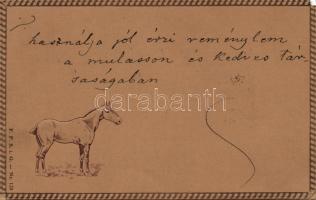 használja jól érzi reménylem
a mulasson és kedves tár
saságaban
darabanth